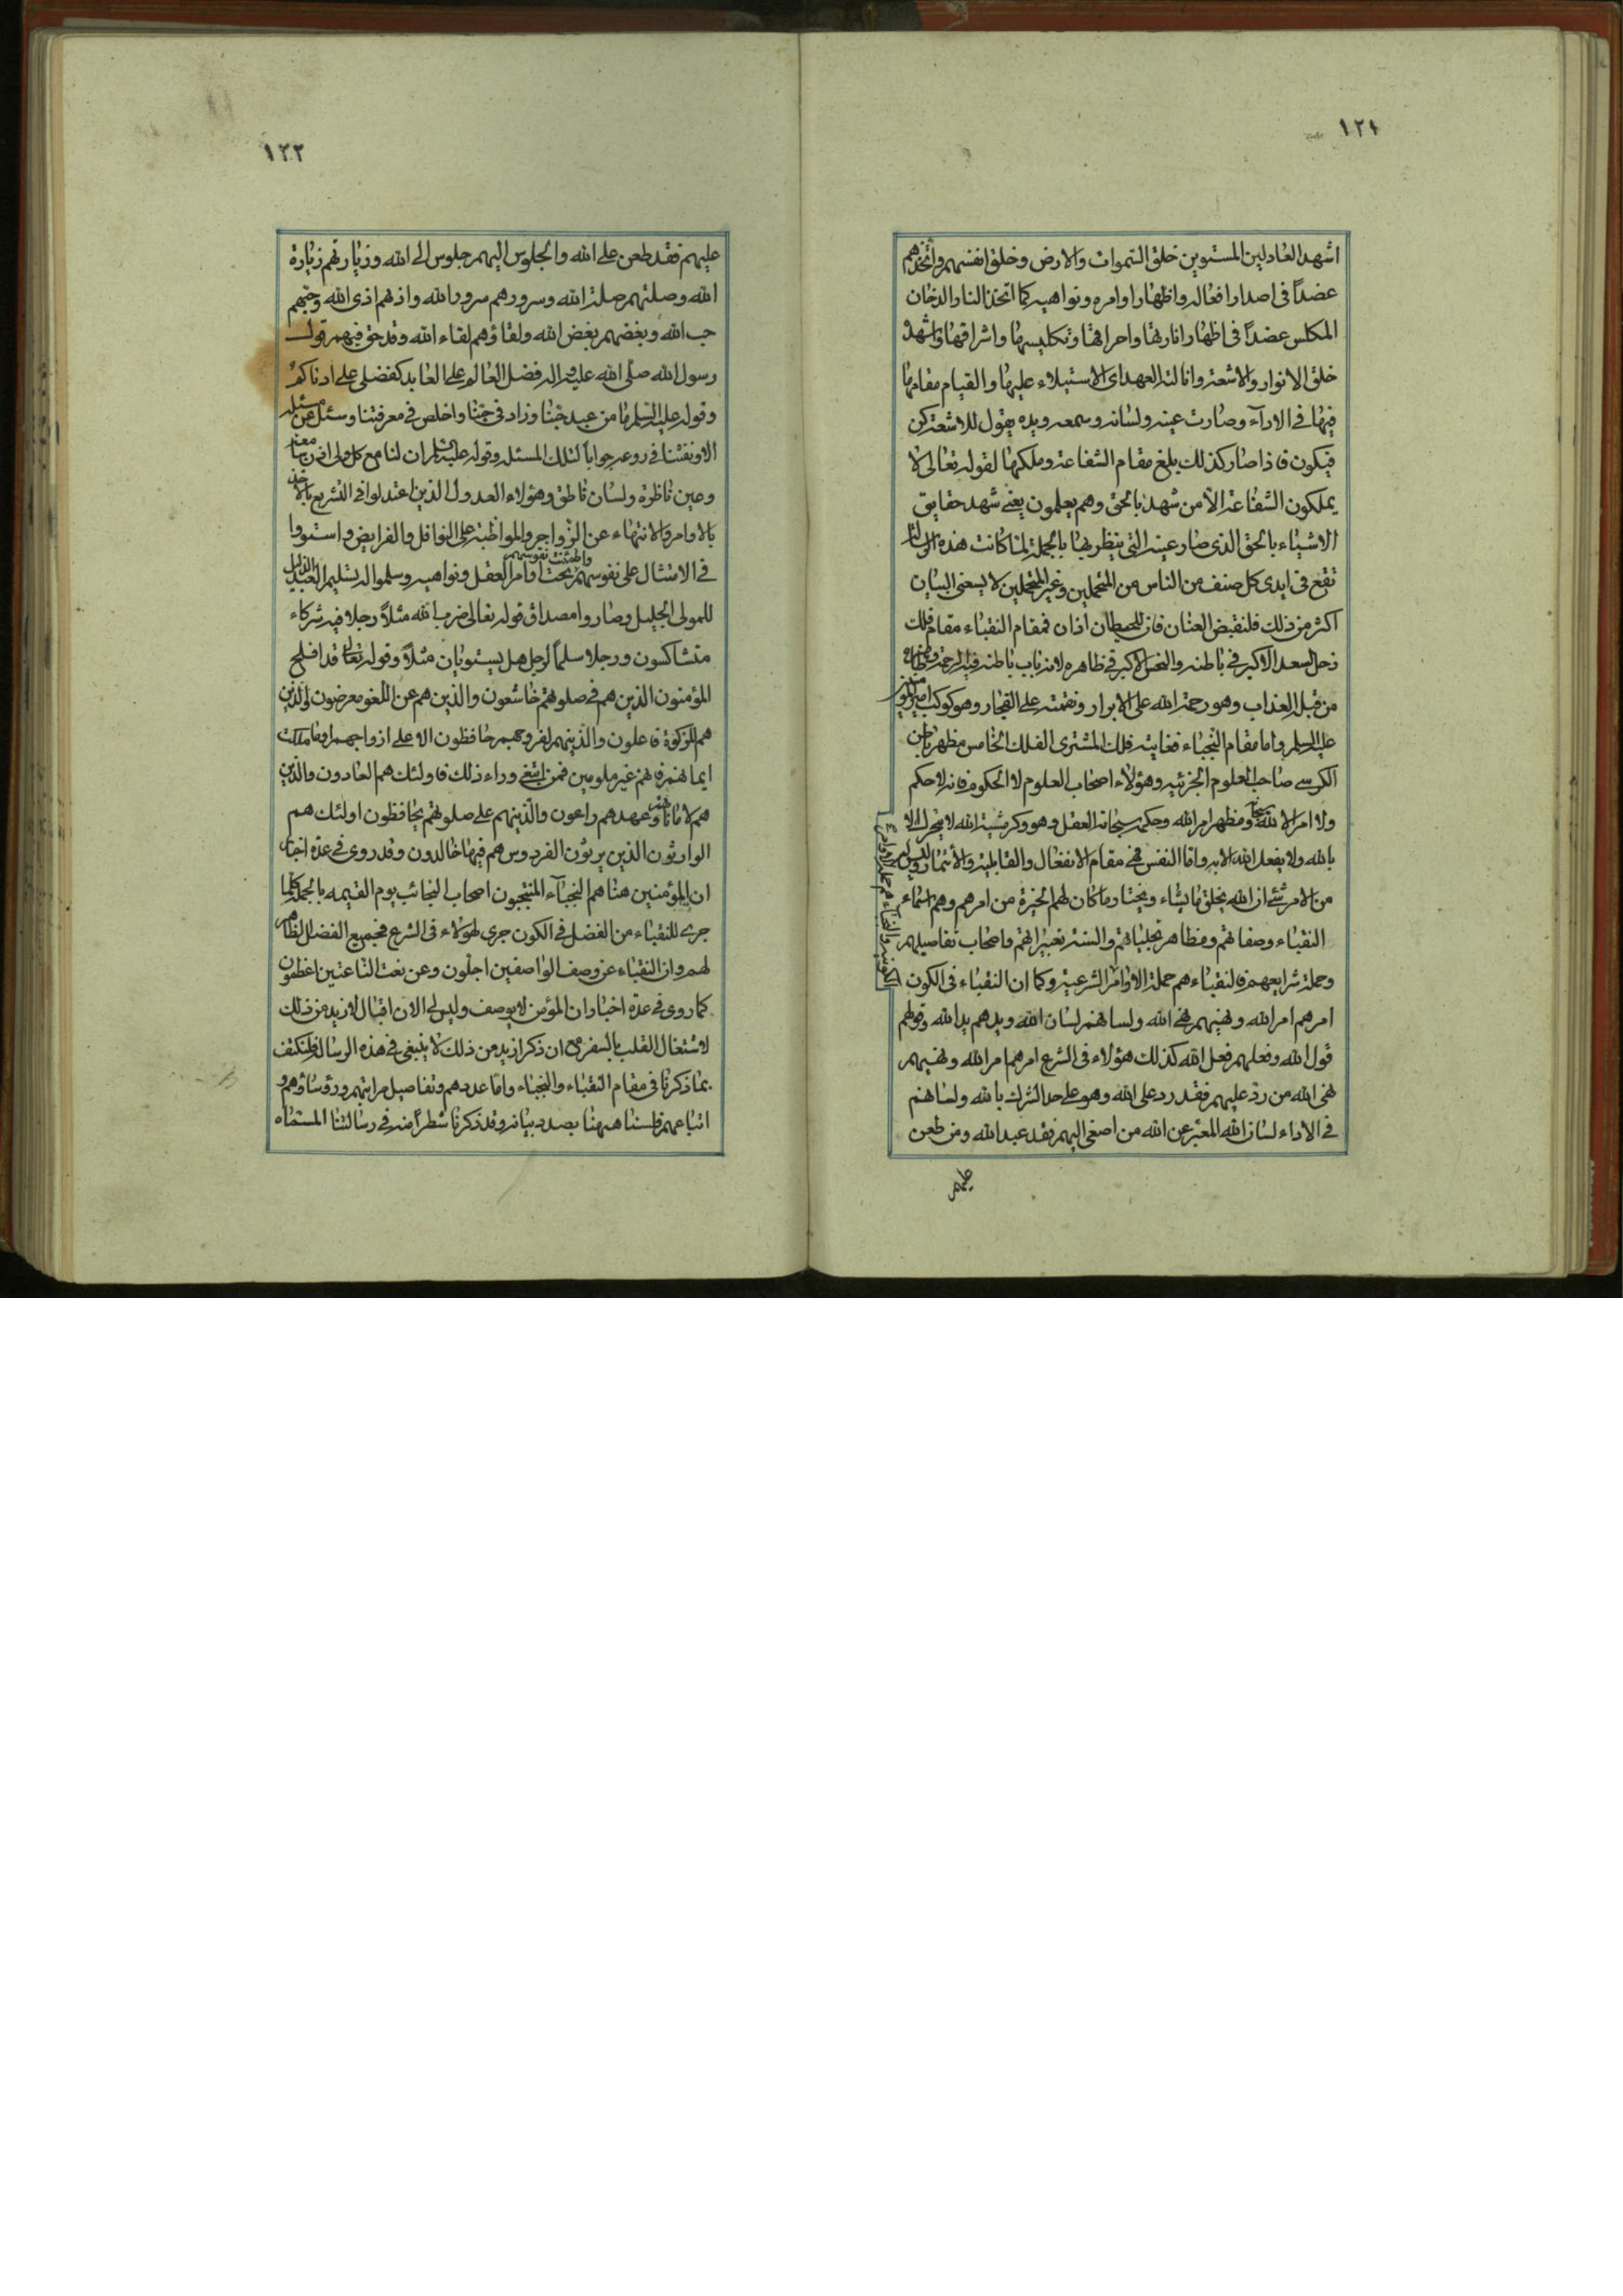 ١٢١
اشهد العادلين المستوين خلق السموات والارض وخلق انفسهم واتخذهم
عضداً فى اصدار افعاله واظهار اوامره ونواهيه كما اتخذ النار الدخان
المكلس عضداً فى اظهار انارتها واحراقها وتكليسها واشراقها واشهده
خلق الانوار والاشعة وانالته العهد اى الاستيلاء عليها والقيام مقامها
فيها فى الاداء وصارت عينه ولسانه وسمعه ويده يقول للاشعة كن
فيكون فاذا صار كذلك بلغ مقام الشفاعة وملكها لقوله تعالى لا
يملكون الشفاعة الّا من شهد بالحق وهم يعلمون يعنى شهد حقايق
الاشياء بالحق الذى صار عينه التى ينظر بها بالجملة لما كانت هذه الرسالة
تقع فى ايدى كل صنف من الناس من المتحملين وغير المتحملين لا يسعنى البيان
اكثر من ذلك فلنقبض العنان فان للحيطان اذان فمقام النقباء مقام فلك
زحل السعد الاكبر فى باطنه والنحس الاكبر فى ظاهره لانه باب باطنه فيه الرحمة وظاهره
من قبله العذاب وهو رحمة الله على الابرار ونقمته على الفجار وهو كوكب امير المؤمنين
عليه السلم واما مقام النجباء فغايته فلك المشترى الفلك الخامس مظهر باطن
الكرسى صاحب العلوم الجزئية وهؤلاء اصحاب العلوم لا الحكومة فانه لا حكم
ولا امر الا لله سبحانه ومظهر امر الله وحكمه سبحانه العقل وهو وكر مشية الله لا يتحرك الا
بالله ولا يفعل الله الا به واما النفس فهى مقام الانفعال والقابلية والائتمار وليس لهم
من الامر شئ ان الله يخلق ما يشاء ويختار ما كان لهم الخيرة من امرهم وهم اسماء
النقباء وصفاتهم ومظاهر تجلياتهم والسنة تعبيراتهم واصحاب تفاصيلهم
وحملة شرايعهم فالنقباء هم حملة الاوامر الشرعية وكما ان النقباء فى الكون
امرهم امر الله ونهيهم نهى الله ولسانهم لسان الله ويدهم يد الله وقولهم
قول الله وفعلهم فعل الله كذلك هؤلاء فى الشرع امرهم امر الله ونهيهم
نهى الله من ردّ عليهم فقد رد على الله وهو على حد الشرك بالله ولسانهم
فى الاداء لسان الله المعبّر عن الله من اصغى اليهم فقد عبد الله ومن طعن
عليهم
١٢٢
عليهم فقد طعن على الله والجلوس اليهم جلوس الى الله وزيارتهم زيارة
الله وصلتهم صلة الله وسرورهم سرور الله واذهم اذى الله وحبهم
حب الله وبغضهم بغض الله ولقاؤهم لقاء الله وقد حق فيهم قول
رسول الله صلى الله عليه واله فضل العالم على العابد كفضلى على ادناكم
وقوله عليه السلم ما من عبد حبنا وزاد فى حبّنا واخلص فى معرفتنا وسئل عن مسئله
الا ونفثنا فى روعه جواباً لتلك المسئله وقوله عليه السلم ان لنا مع كل ولى اذن سامعة
وعين ناظرة ولسان ناطق وهؤلاء العدول الذين اعتدلوا فى التشريع بالاخذ
بالاوامر والانتهاء عن الزواجر والمواظبة على النوافل والفرايض واستووا
فى الامتثال على نفوسهم واطمئنت نفوسهم تحت اوامر العقل ونواهيه وسلموا له تسليم العبد الذليل
للمولى الجليل وصاروا مصداق قوله تعالى ضرب الله مثلاً رجلا فيه شركاء
متشاكسون ورجلا سلماً لرجل هل يستويان مثلاً وقوله تعالى قد افلح
المؤمنون الذين هم فى صلوتهم خاشعون والذين هم عن اللغو معرضون والذين
هم للزكوة فاعلون والذين هم لفروجهم حافظون الا على ازواجهم او ما ملكت
ايمانهم فانهم غير ملومين فمن ابتغى وراء ذلك فاولئك هم العادون والذين
هم لاماناتهم وعهدهم راعون والذين هم على صلوتهم يحافظون اولئك هم
الوارثون الذين يرثون الفردوس هم فيها خالدون وقد روى فى عدة اخبار
ان المؤمنين هنا هم النجباء المنتجبون اصحاب النجائب يوم القيمه بالجملة كلما
جرى للنقباء من الفضل فى الكون جرى لهؤلاء فى الشرع فجميع الفضل الظاهر
لهم وان النقباء عن وصف الواصفين اجلّون وعن نعت الناعتين اعظمون
كما روى فى عدة اخبار ان المؤمن لا يوصف وليس لى الان اقبال لازيد من ذلك
لاشتغال القلب بالسفر مع ان ذكر ازيد من ذلك لا ينبغى فى هذه الرسالة فلنكتف
بما ذكرنا فى مقام النقباء والنجباء واما عددهم وتفاصيل مراتبهم ورؤساؤهم و
اتباعهم فلسنا هيهنا بصدد بيانه وقد ذكرنا شطراً منه فى رسالتنا المسماه